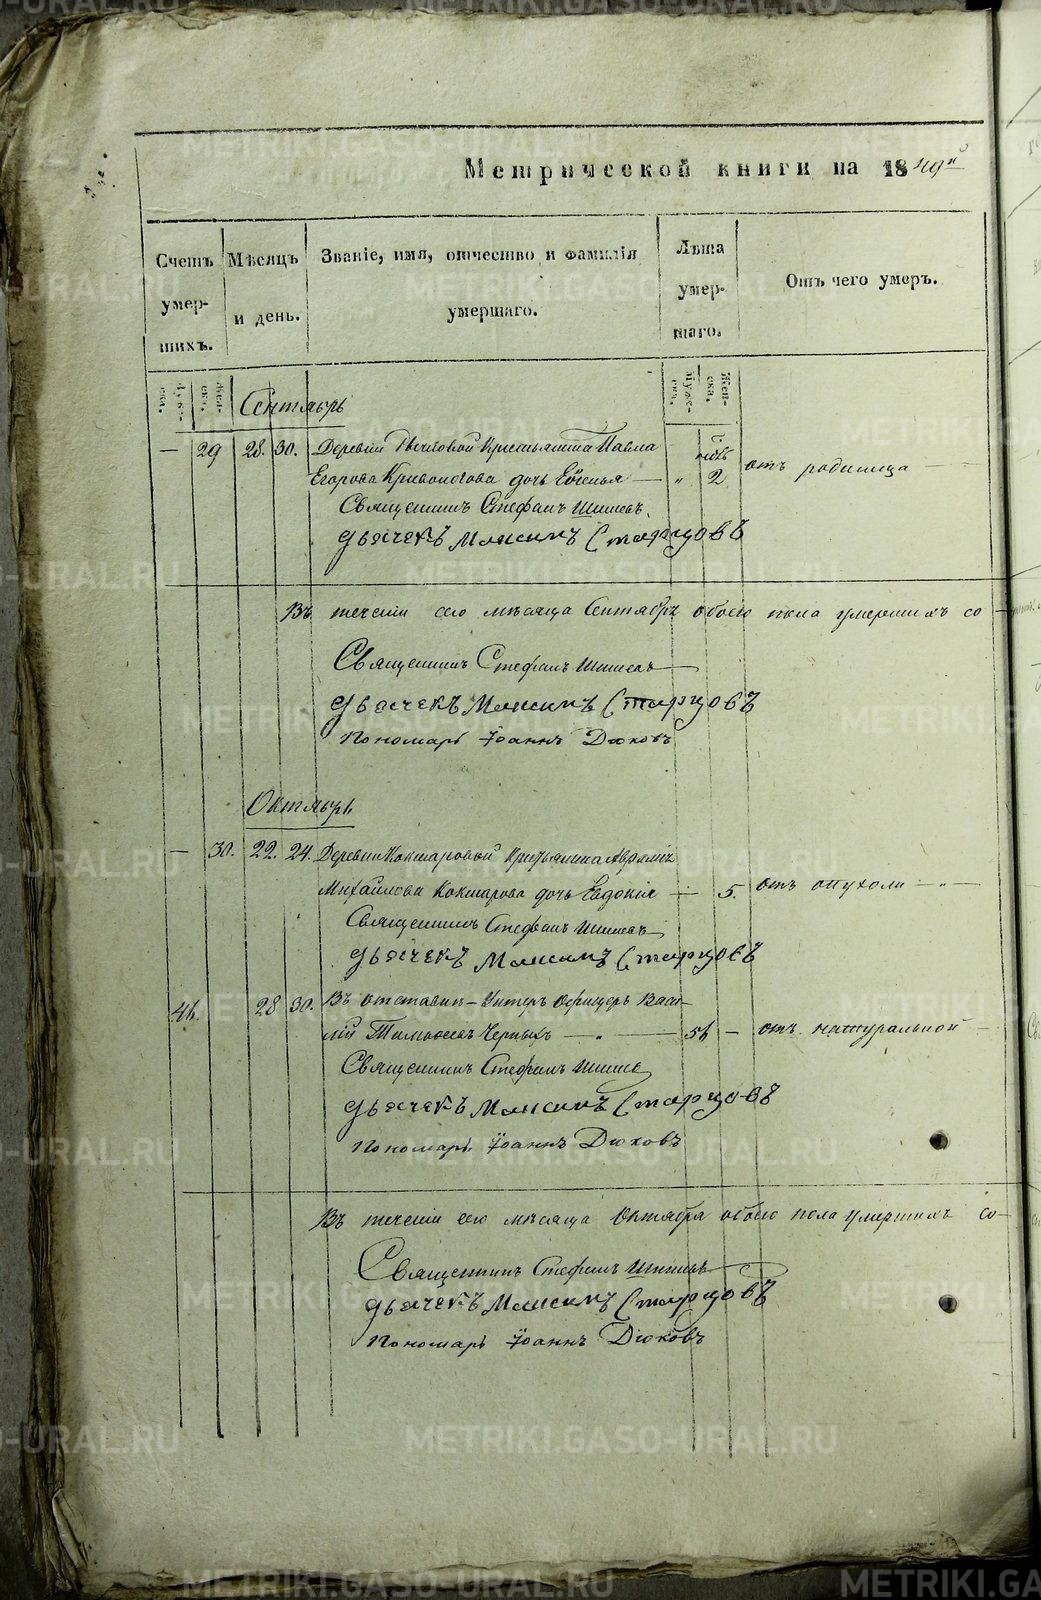 Метрической книги на 1849й
Счетъ умершихъ.
Мѣсяцъ и день.
Званіе, имя, отчество и фамилія умершаго.
Лѣта умершаго.
Отъ чего умеръ.
Мужеска. Женска.
Мужеска. Женска.
Сентябрь
— 29 28. 30. Деревни Крестьянина Павла
Егорова Кривоногова дочь — „ 2 отъ родимца —
Священникъ Стефанъ Шишевъ.
Дьячекъ Максимъ Старцовъ
Въ теченіи сего мѣсяца Сентябрѣ обоего пола умершихъ со-
Священникъ Стефанъ Шишевъ
Дьячекъ Максимъ Старцовъ
Пономарь Іоаннъ Дюковъ
Октябрь
— 30. 22. 24. Деревни Кокшаровой Крестьянина
Михайлова Кокшарова дочь Евдокія — 5. отъ опухоли —
Священникъ Стефанъ Шишевъ
Дьячекъ Максимъ Старцовъ
41. 28 30. Въ отставкѣ Унтеръ Офицеръ Васи-
лій Черныхъ — „ — 51 — отъ натуральной —
Священникъ Стефанъ Шишевъ
Дьячекъ Максимъ Старцовъ
Пономарь Іоаннъ Дюковъ
Въ теченіи сего мѣсяца Октября обоего пола умершихъ со-
Священникъ Стефанъ Шишевъ
Дьячекъ Максимъ Старцовъ
Пономарь Іоаннъ Дюковъ
METRIKI.GASO-URAL.RU